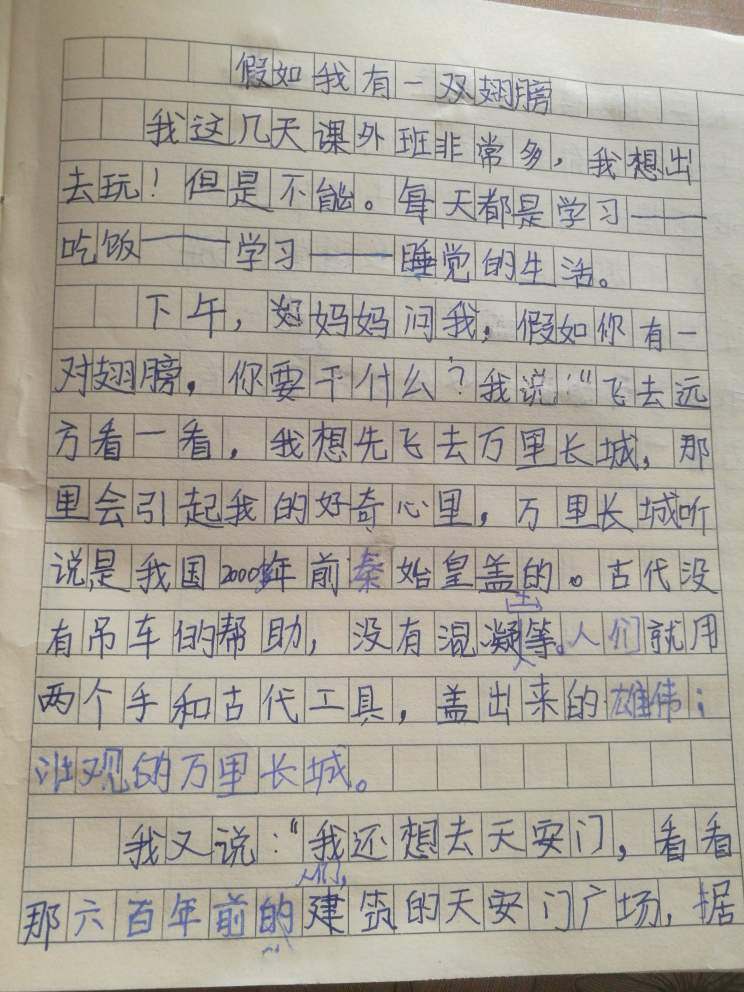 假如我有一双翅膀
我这几天课外班非常多，我想出
去玩！但是不能。每天都是学习——
吃饭——学习——睡觉的生活。
下午，妈妈问我，假如你有一
对翅膀，你要干什么？我说：“飞去远
方看一看，我想先飞去万里长城，那
里会引起我的好奇心里，万里长城听
说是我国2000年前秦始皇盖的。古代没
有吊车的帮助，没有混凝土等。人们就用
两个手和古代工具，盖出来的雄伟；
壮观的万里长城。
我又说：“我还想去天安门，看看
那六百年前的人们，建筑的天安门广场，据